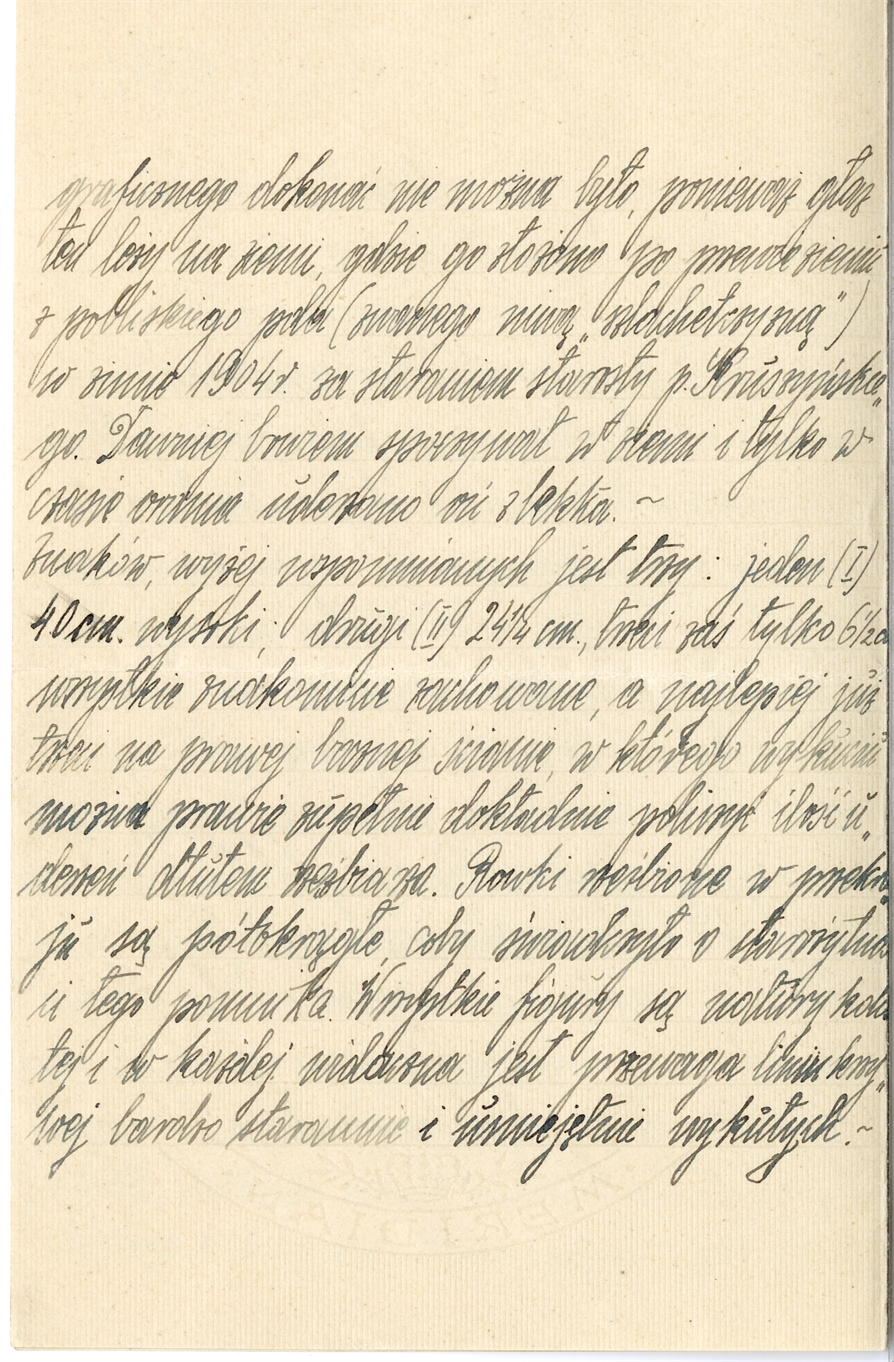 graficznego dokonać nie można było, ponieważ głaz
ten leży na ziemi, gdzie go złożono po przewiezieniu
z pobliskiego pola (zwanego niwą „szlachetczyzną")
w zimie 1904 r. za staraniem starosty p. Kruszyńskie„
go. Dawniej bowiem spoczywał w ziemi i tylko w
czasie orania uderzano oń z lekka. ~
Znaków, wyżej wspomnianych jest trzy: jeden (I)
40 cm. wysoki; drugi (II) 24¼ cm., trzeci zaś tylko 6½ c
wszystkie znakomicie zachowane, a najlepiej już
trzeci na prawej bocznej ścianie, w którego wykuciu
można prawie zupełnie dokładnie policzyć ilość u„
derzeń dłutem rzeźbiarza. Rowki rzeźbione w przekro
ju są półokrągłe, coby świadczyło o starożytno
ci tego pomnika. Wszystkie figury są natury kolis
tej i w każdej widoczna jest przewaga linii krzy„
wej bardzo starannie i umiejętnie wykutych. ~
MERIDIAN